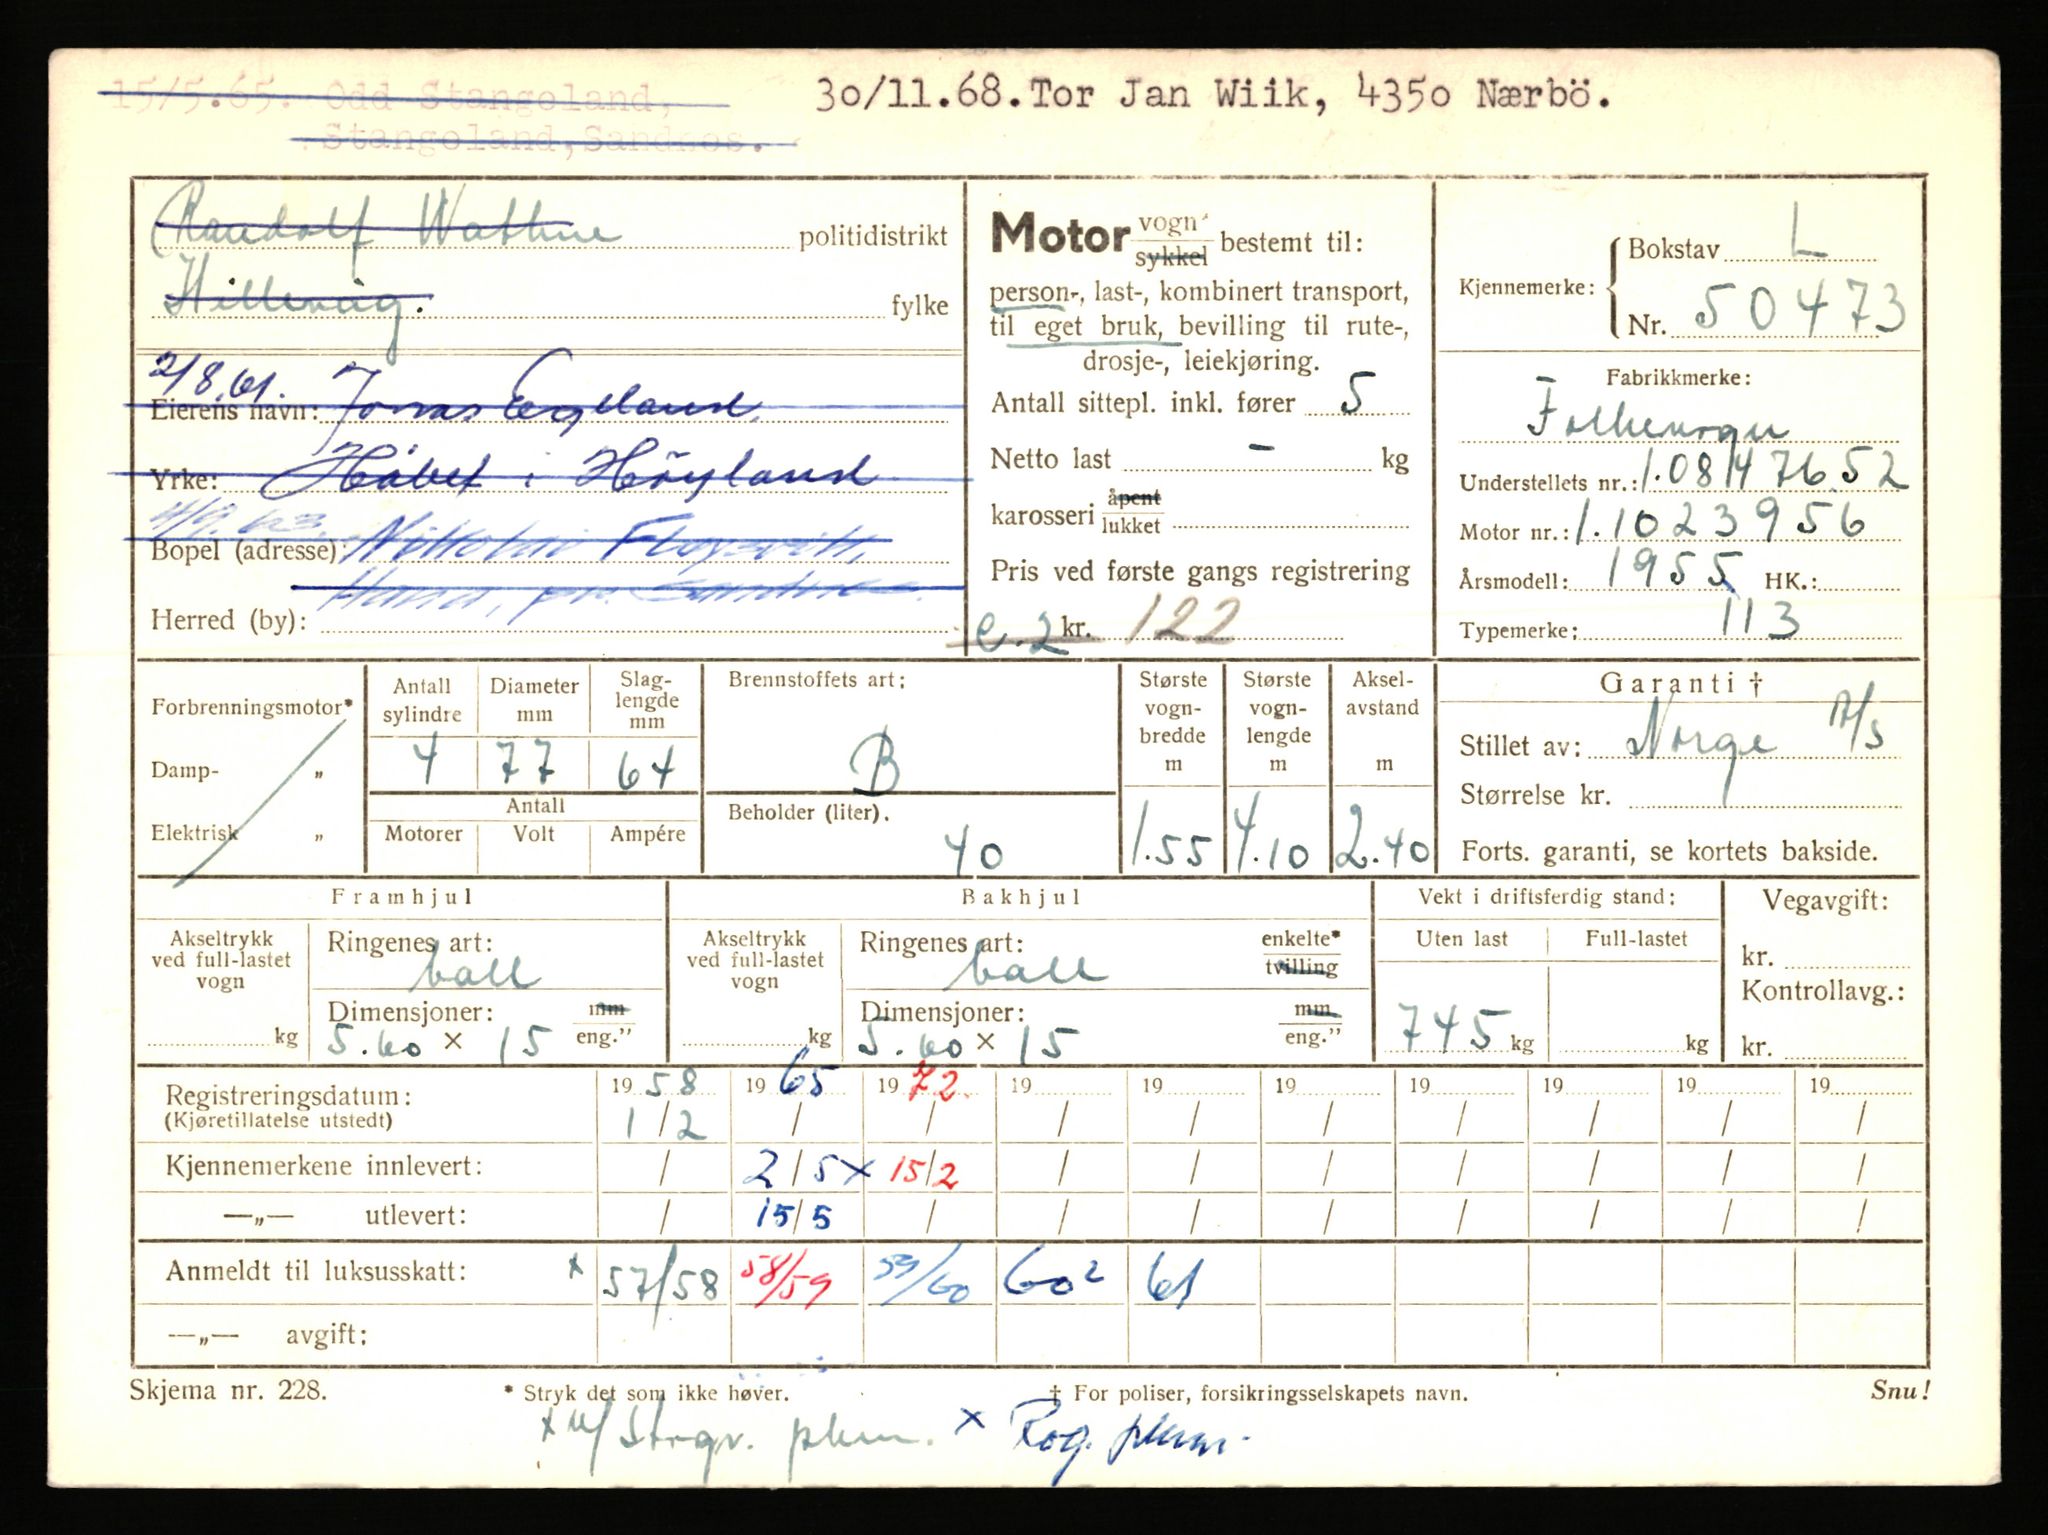 15/5.65. Odd Stangoland,
Stangoland, Sandnes.
30/11.68. Tor Jan Wiik, 4350 Nærbö.
Randolf Wathne politidistrikt
Hillevåg. fylke
2/8.61.
Eierens navn: Jonas Egeland,
Yrke: Håbet i Höyland
4/9.63.
Bopel (adresse):
Hana, pr. Sandnes.
Herred (by):
Motor vogn sykkel bestemt til:
person-, last-, kombinert transport,
til eget bruk, bevilling til rute-,
drosje-, leiekjøring.
Antall sittepl. inkl. fører 5
Netto last - kg
karosseri åpent lukket
Pris ved første gangs registrering
e.2 kr. 122
Kjennemerke: Bokstav L
Nr. 50473
Fabrikkmerke:
Folkevogn
Understellets nr.: 1.0847652
Motor nr.: 1.1023956
Årsmodell: 1955 HK.:
Typemerke: 113
Forbrenningsmotor*
Damp- „
Elektrisk „
Antall sylindre
4
Diameter mm
77
Slag-lengde mm
64
Antall
Motorer Volt Ampére
Brennstoffets art:
B
Beholder (liter).
40
Største vogn-bredde m
1.55
Største vogn-lengde m
4.10
Aksel-avstand m
2.40
Garanti †
Stillet av: Norge A/S
Størrelse kr.
Forts. garanti, se kortets bakside.
Framhjul
Akseltrykk ved full-lastet vogn
kg
Ringenes art:
ball
Dimensjoner: mm eng."
5.60 × 15
Bakhjul
Akseltrykk ved full-lastet vogn
kg
Ringenes art: enkelte* tvilling
ball
Dimensjoner: mm eng."
5.60 × 15
Vekt i driftsferdig stand:
Uten last Full-lastet
745 kg kg
Vegavgift:
kr.
Kontrollavg.:
kr.
Registreringsdatum: 1958 1965 1972 19 19 19 19 19 19 19
(Kjøretillatelse utstedt) 1/2 / / / / / / / / /
Kjennemerkene innlevert: / 2/5 x 15/2 / / / / / / /
—„— utlevert: / 15/5 / / / / / / / /
Anmeldt til luksusskatt: x 57/58 58/59 59/60 60² 61
—„— avgift:
Skjema nr. 228. * Stryk det som ikke høver. † For poliser, forsikringsselskapets navn. Snu!
x Rog.